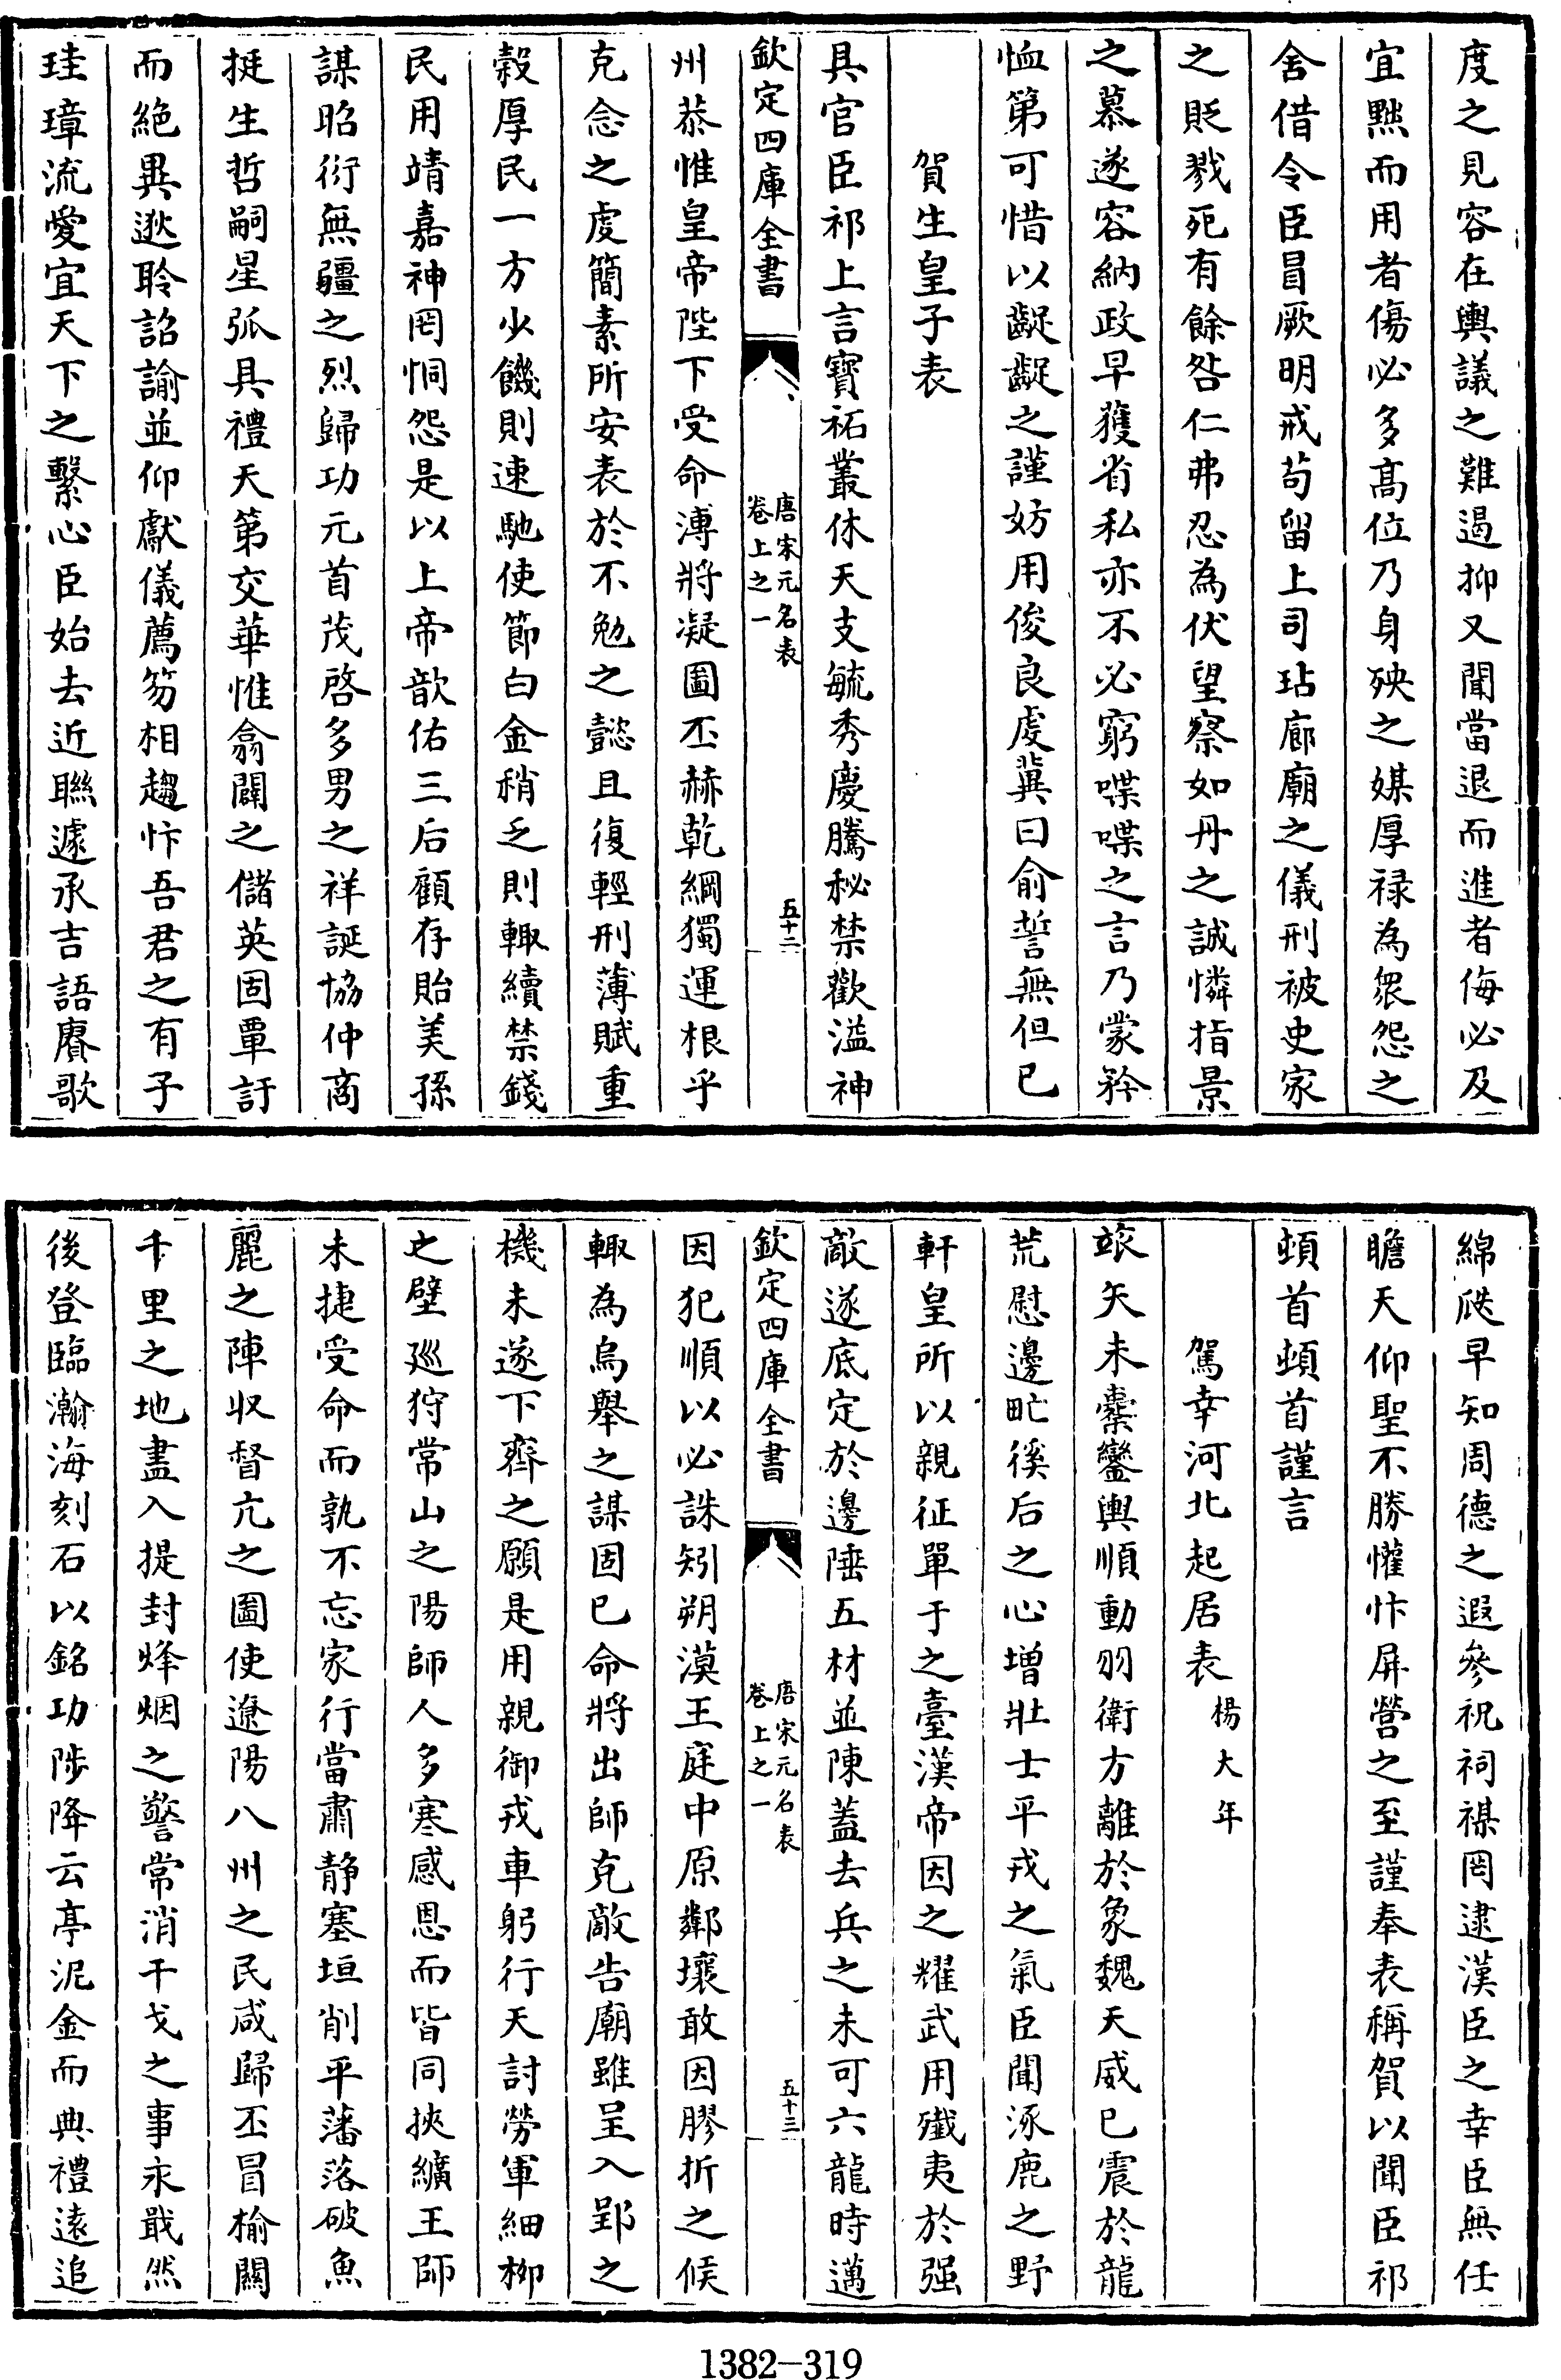 度之見容在輿議之難遏抑又聞當退而進者侮必及
宜黜而用者傷必多高位乃身殃之媒厚禄為衆怨之
舍借令臣冒厥明戒苟留上司玷廊廟之儀刑被史家
之貶戮死有餘咎仁弗忍為伏望察如丹之誠憐指景
之慕遂容納政早獲省私亦不必窮喋喋之言乃蒙矜
恤第可惜以齪齪之謹妨用俊良處冀曰俞誓無但已
賀生皇子表
具官臣祁上言寶祏叢休天支毓秀慶騰秘禁歡溢神
欽定四庫全書
唐宋元名表
卷上之一
五十二
州恭惟皇帝陛下受命溥將凝圖丕赫乾綱獨運根乎
克念之虔簡素所安表於不勉之懿且復輕刑薄賦重
穀厚民一方少饑則速馳使節白金稍乏則輙續禁錢
民用靖嘉神罔恫怨是以上帝歆佑三后顧存貽美孫
謀昭衍無疆之烈歸功元首茂啓多男之祥誕協仲商
挺生哲嗣星弧具禮天第交華惟翕闢之儲英固覃訏
而絶異逖聆詔諭並仰獻儀薦笏相趨忭吾君之有子
珪璋流愛宜天下之繫心臣始去近聯遽承吉語賡歌
綿瓞早知周德之遐參祝祠禖罔逮漢臣之幸臣無任
瞻天仰聖不勝懽忭屏營之至謹奉表稱賀以聞臣祁
頓首頓首謹言
駕幸河北起居表 楊大年
䇓矢未櫜鑾輿順動羽衛方離於象魏天威已震於龍
荒慰邊甿徯后之心增壯士平戎之氣臣聞涿鹿之野
軒皇所以親征單于之臺漢帝因之耀武用殱夷於强
敵遂底定於邊陲五材並陳蓋去兵之未可六龍時邁
欽定四庫全書
唐宋元名表
卷上之一
五十三
因犯順以必誅矧朔漠王庭中原鄰壤敢因膠折之候
輙為烏舉之謀固已命將出師克敵告廟雖呈入郢之
機未遂下齊之願是用親御戎車躬行天討勞軍細栁
之壁廵狩常山之陽師人多寒感恩而皆同挾纊王師
未捷受命而孰不忘家行當肅静塞垣削平藩落破魚
麗之陣収督亢之圖使遼陽八州之民咸歸丕冒榆關
千里之地盡入提封烽烟之警常消干戈之事永戢然
後登臨瀚海刻石以銘功陟降云亭泥金而典禮遠追
1382-319